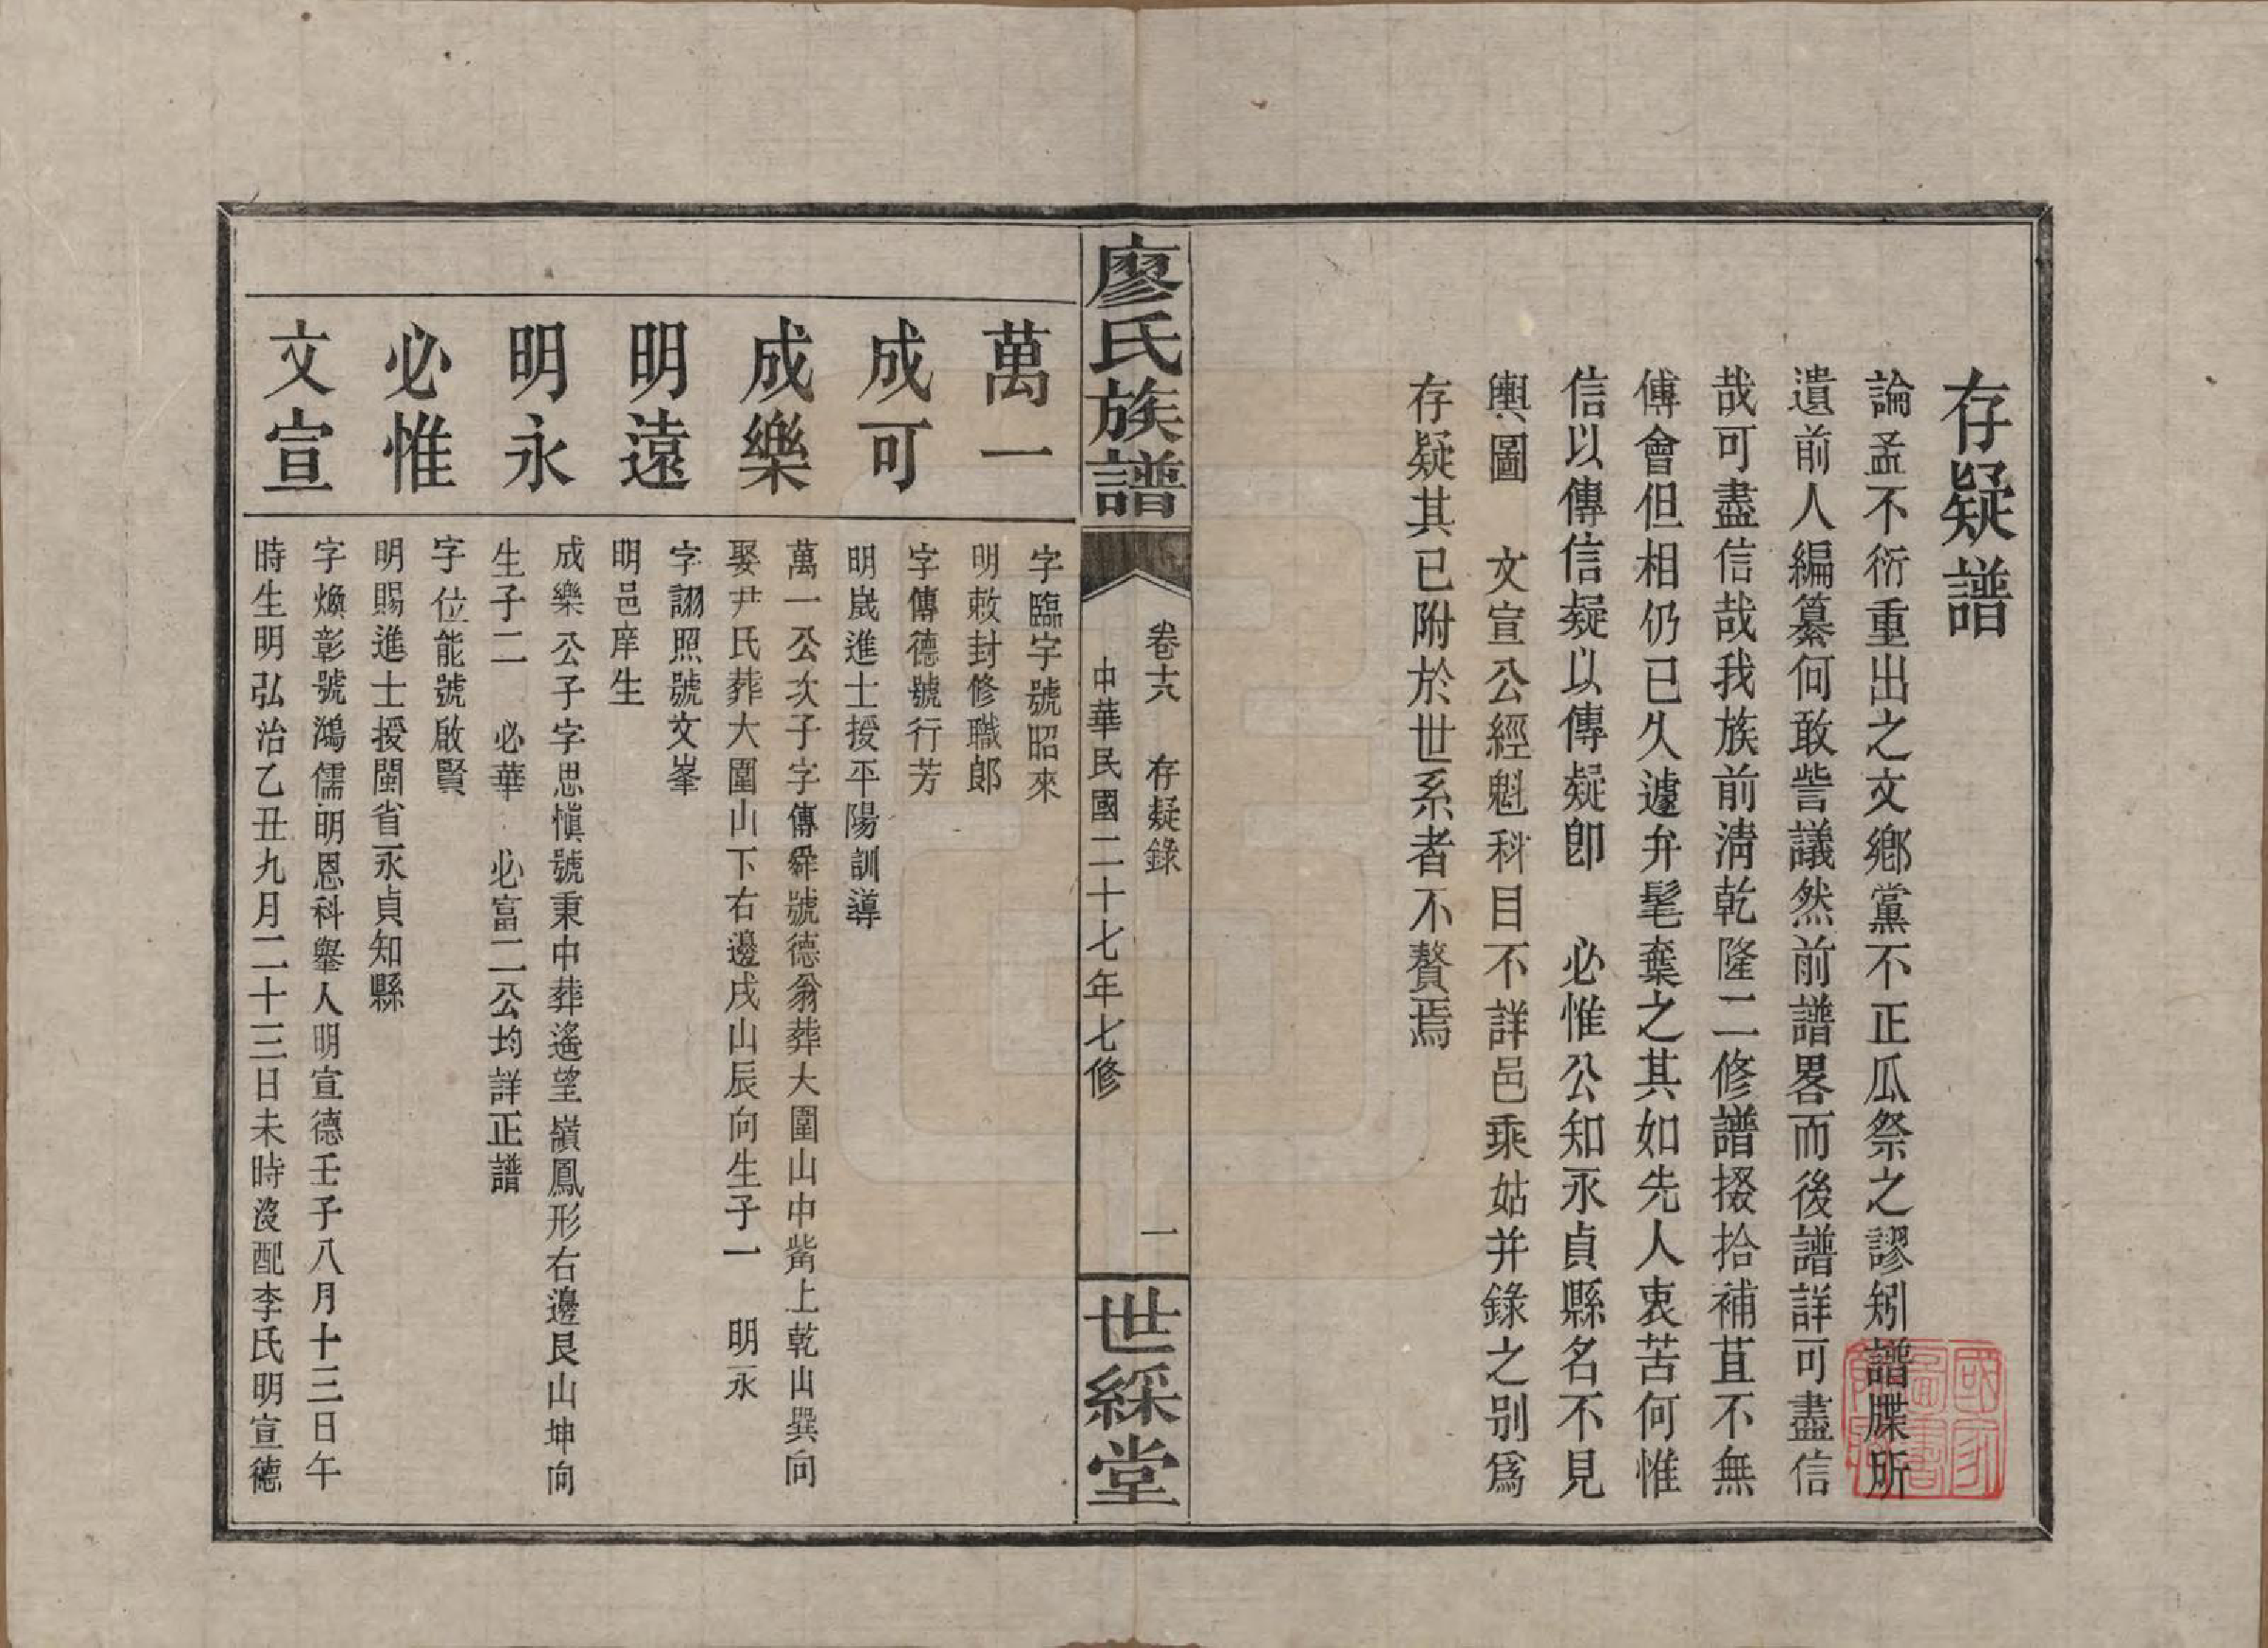 存疑譜
論孟不衍重出之文鄉黨不正瓜祭之謬矧譜牒所
遺前人編纂何敢訾議然前譜畧而後譜詳可盡信
哉可盡信哉我族前淸乾隆二修譜掇拾補苴不無
傅會但相仍已久遽弁髦棄之其如先人衷苦何惟
信以傳信疑以傳疑卽　必惟公知永貞縣名不見
輿圖　文宣公經魁科目不詳邑乘姑并錄之別爲
存疑其已附於世系者不贅焉
廖氏族譜
卷十六　存疑錄　一
中華民國二十七年七修
世綵堂
萬一
字臨字號昭來
明敕封修職郎
成可
字傳德號行芳
明歲進士授平陽訓導
成樂
萬一公次子字傳舜號德翁葬大圍山中嘴上乾山巽向
娶尹氏葬大圍山下右邊戌山辰向生子一　明永
明遠
字詡照號文峯
明邑庠生
明永
成樂公子字思愼號秉中葬遙望嶺鳳形右邊艮山坤向
生子二　必華　必富二公均詳正譜
必惟
字位能號啟賢
明賜進士授閩省永貞知縣
文宣
字煥彰號鴻儒明恩科舉人明宣德壬子八月十三日午
時生明弘治乙丑九月二十三日未時沒配李氏明宣德